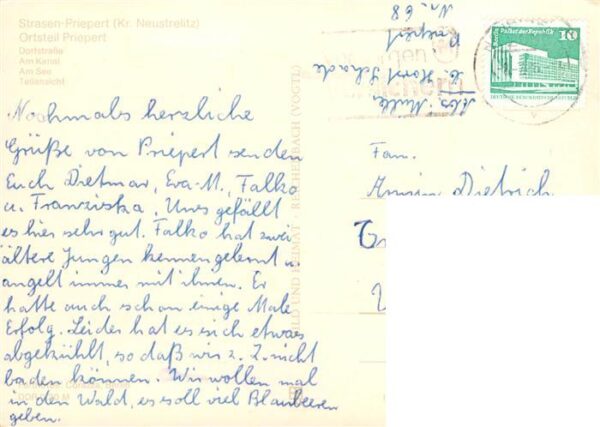 Strasen-Priepert (Kr. Neustrelitz)
Ortsteil Priepert
Dorfstraße
Am Kanal
Am See
Teilansicht
Nochmals herzliche
Grüße von Priepert senden
Euch Dietmar, Eva-M., Falko
u. Franziska. Uns gefällt
es hier sehr gut. Falko hat zwei
ältere Jungen kennengelernt u.
angelt immer mit ihnen. Er
hatte auch schon einige Male
Erfolg. Leider hat es sich etwas
abgekühlt, so daß wir z. Z. nicht
baden können. Wir wollen mal
in den Wald, es soll viel Blaubeeren
geben.
BILD UND HEIMAT REICHENBACH (VOGTL)
Abs. Müller
b. Horst Schade
Priepert
Nr. 68
Palast der Republik
Berlin
10
DEUTSCHE DEMOKRATISCHE REPUBLIK
Fam.
Armin Dietrich